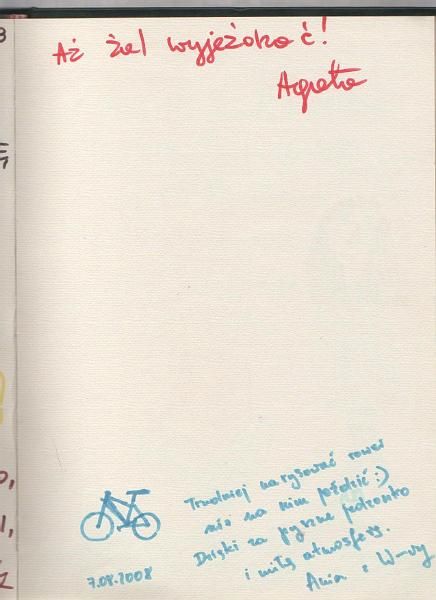 Aż żal wyjeżdżać!
Agata
Trudniej narysować rower
niż na nim jeździć :)
Dzięki za pyszne jedzonko
i miłą atmosferę.
Ania z W-wy
7.08.2008